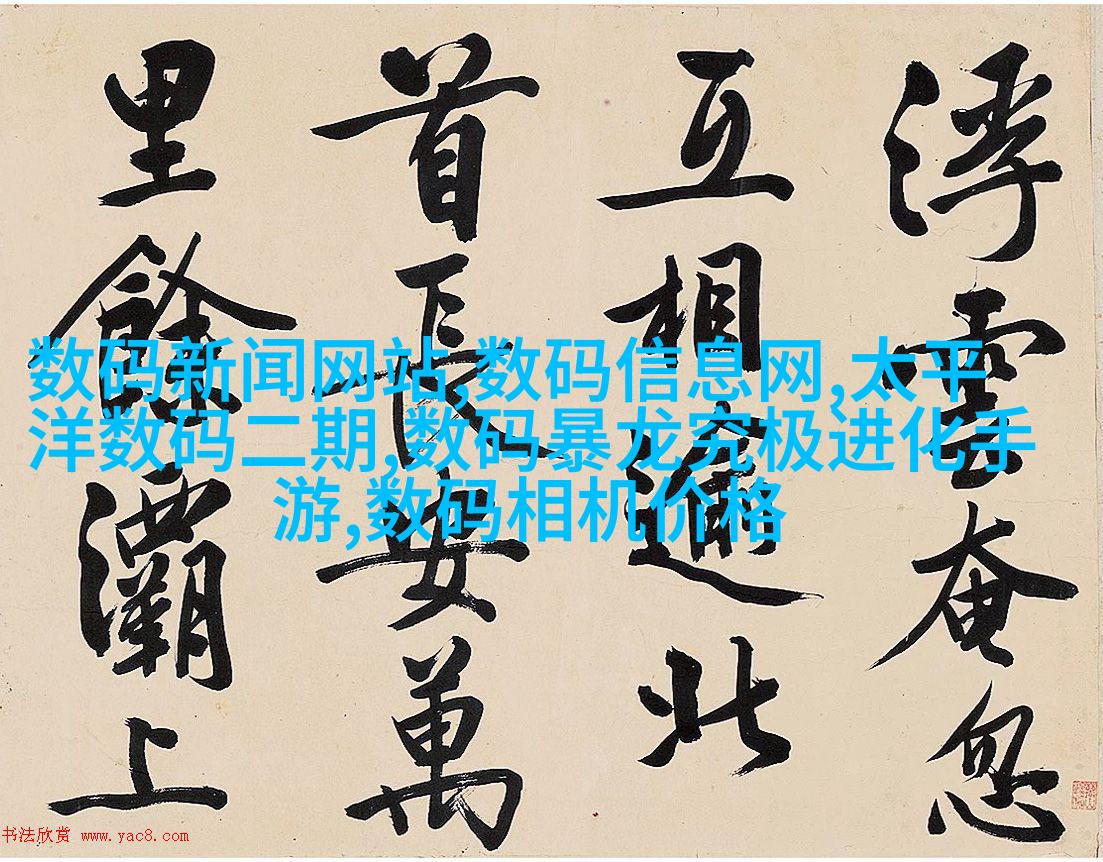 浮雲奄忽
互相北
首長安萬
里餘灞上
数码新闻网站,数码信息网,太平
洋数码二期,数码暴龙究极进化手
游,数码相机价格
书法欣赏 www.yac8.com